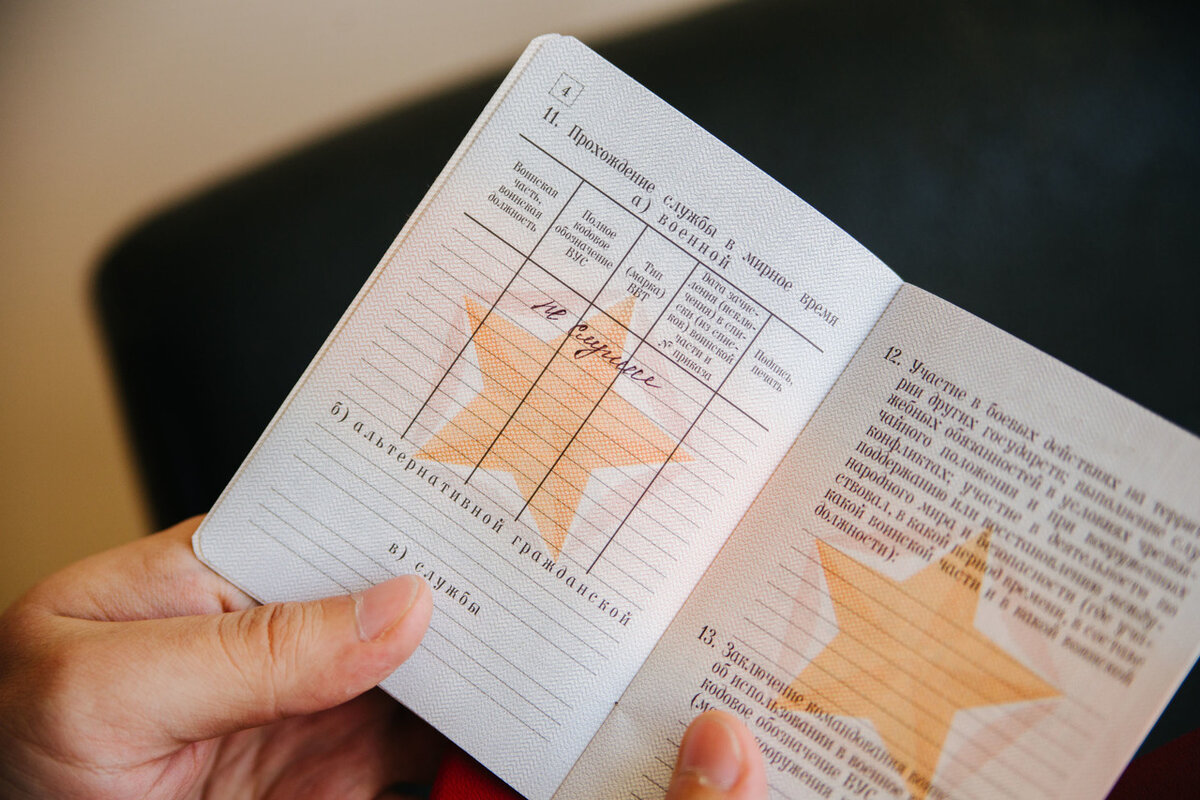 4
11. Прохождение службы в мирное время
а) военной
Воинская
часть,
воинская
должность
Полное
кодовое
обозначение
ВУС
Тип
(марка)
ВВТ
Дата зачис-
ления (исклю-
чения) в спи-
ски (из спис-
ков) воинской
части и
№ приказа
Подпись,
печать
не служил
б) альтернативной гражданской
в) службы
12. Участие в боевых действиях на террито-
рии других государств; выполнение слу-
жебных обязанностей в условиях чрезвы-
чайного положения и при вооруженных
конфликтах; участие в деятельности по
поддержанию или восстановлению между-
народного мира и безопасности (где участ-
ствовал, в какой период времени, в составе
какой воинской части и в какой воинской
должности).
13. Заключение командования
об использовании в военное
кодовое обозначение ВУС
вооружения